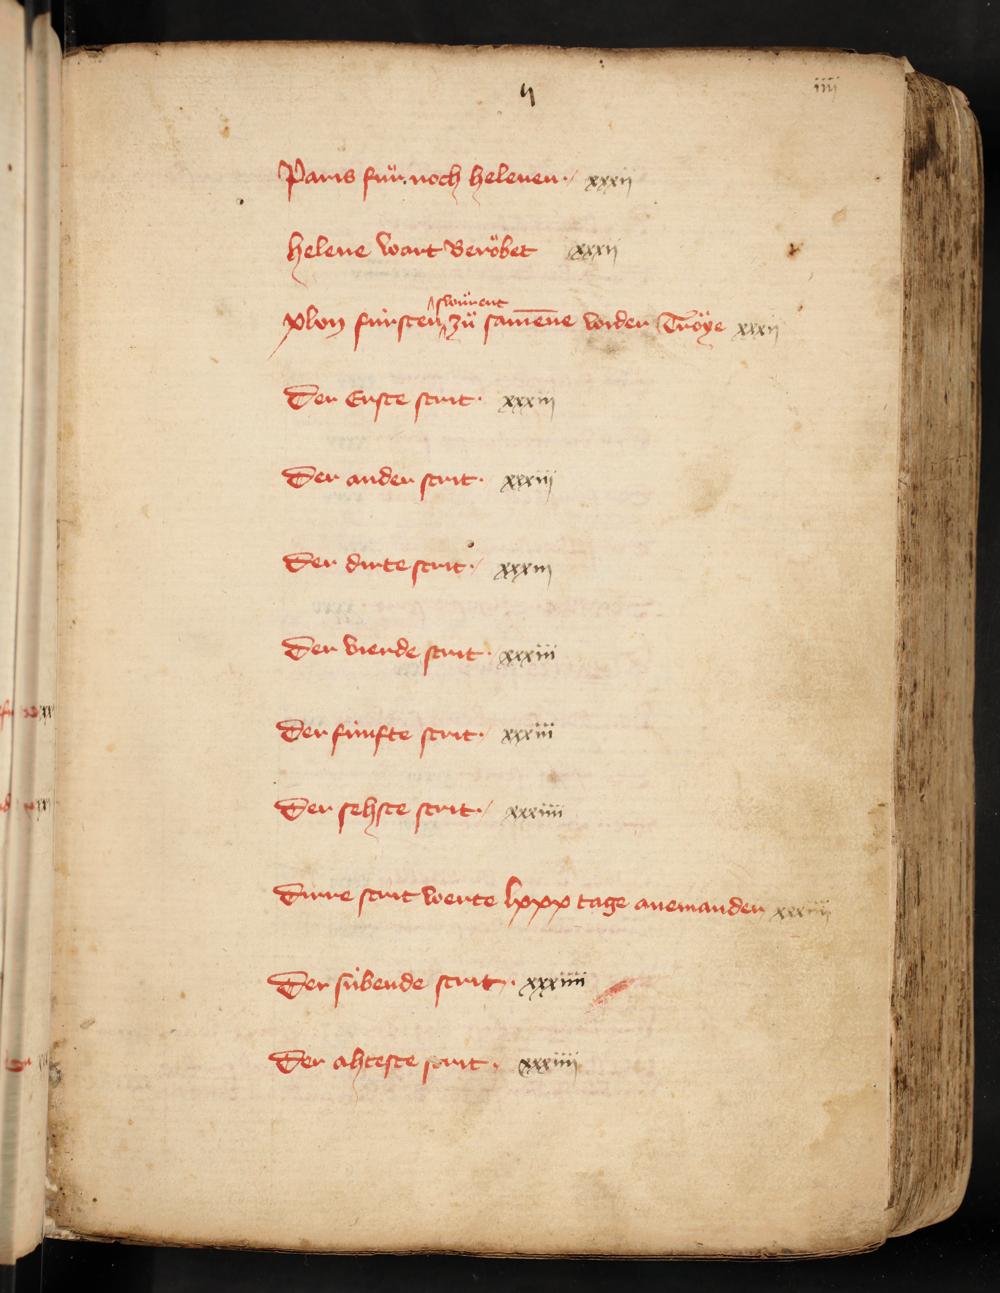 ij iiij
Paris fuͤr noch helenen · xxxij
helene wart Beroͤbet xxxij
xlvij fuͤrsten swuͤrent zuͤ samēne wider Troͤye xxxij
Der Erste strit · xxxiij
Der ander strit · xxxiij
Der dirte strit · xxxiij
Der vierde strit · xxxiii
Der fúnfte strit · xxxiii
Der sehste strit · xxxiiii
Dirre strit werte lxxx tage aneinander
Der súbende strit · xxxiiii
Der ahteste strit · xxxiiij